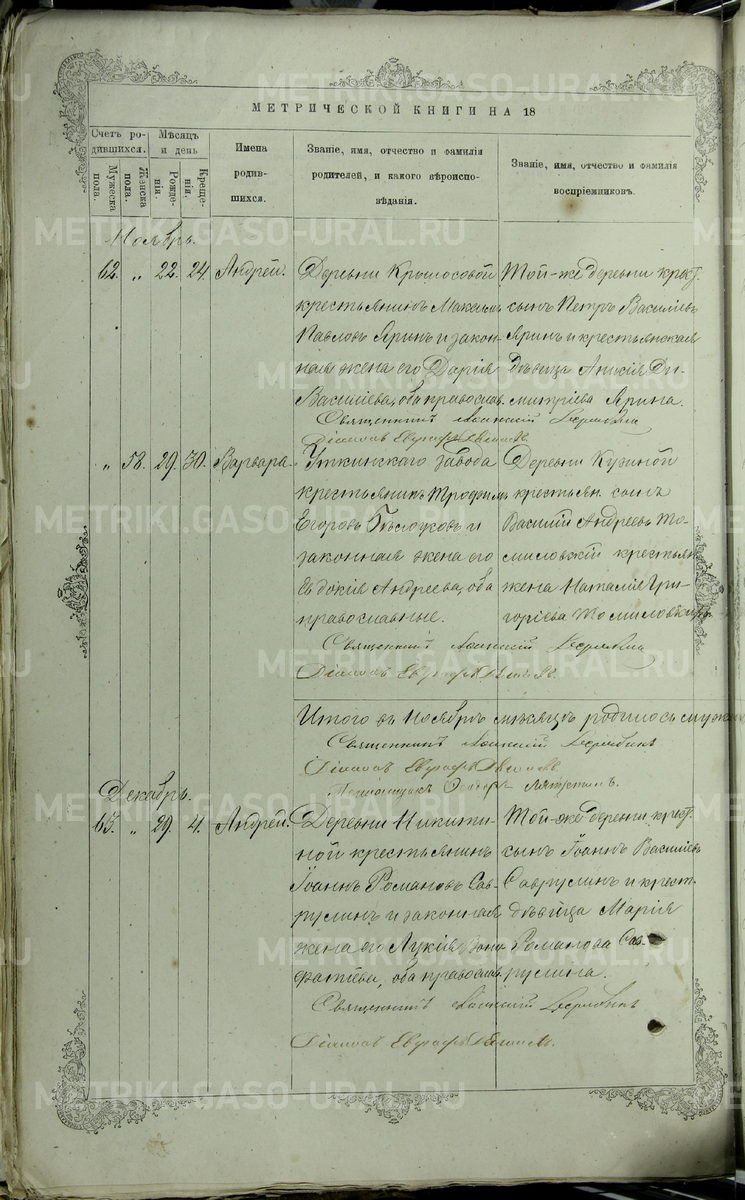 МЕТРИЧЕСКОЙ КНИГИ НА 18
Счетъ ро-
дившихся.
Мужеска
пола.
Женска
пола.
Мѣсяцъ
и день
Рожде-
нія.
Креще-
нія.
Имена
родив-
шихся.
Званіе, имя, отчество и фамилія
родителей, и какого вѣроиспо-
вѣданія.
Званіе, имя, отчество и фамилія
воспріемниковъ.
Ноябрь.
62. „ 22. 24. Андрей.
Деревни Кромосовой
крестьянинъ Максимъ
Павловъ Яринъ и закон-
ная жена его Дарія
Василіева, оба православ.
Той-же деревни крест.
сынъ Петръ Василіевъ
Яринъ и крестьянская
дѣвица Анисія Ди-
митріева Ярина.
Священникъ
Діаконъ Евграфъ
„ 58. 29. 30. Варвара.
Уткинскаго завода
крестьянинъ Трофимъ
Егоровъ Бѣлоусовъ и
законная жена его
Евдокія Андреева, оба
православные.
Деревни Кузиной
крестьян. сынъ
Василій Андреевъ То-
миловскій крестьян.
жена Наталія Гри-
горіева Томиловская
Священникъ
Діаконъ Евграфъ
Итого въ Ноябрѣ мѣсяцѣ родилось мужеск
Священникъ
Діаконъ Евграфъ
Декабрь.
63. „ 29. 4. Андрей.
Деревни Никити-
ной крестьянинъ
Іоаннъ Романовъ Сав-
рулинъ и законная
жена его Лукія Вони-
фатіева, оба православ.
Той-же деревни крест.
сынъ Іоаннъ Василіевъ
Саврулинъ и крест.
дѣвица Марія
Романова Сав-
рулина.
Священникъ
Діаконъ Евграфъ
METRIKI.GASO-URAL.RU